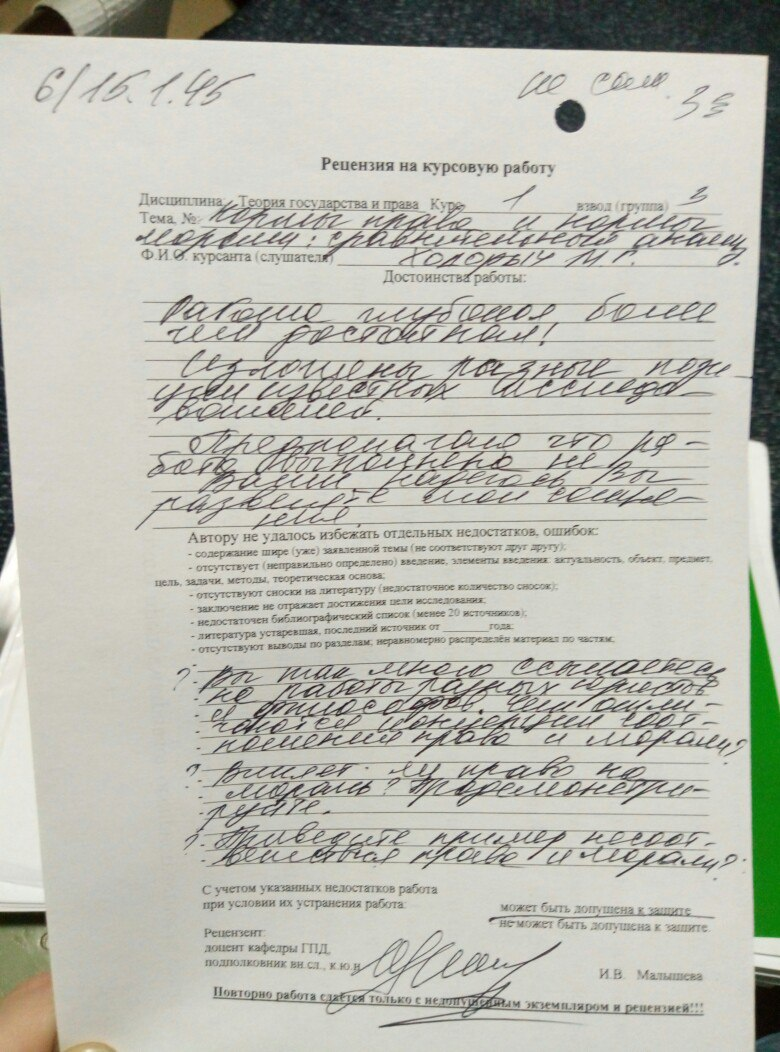 6/15.1.45
не сам.
Рецензия на курсовую работу
Дисциплина Теория государства и права Курс 1 взвод (группа) 3
Тема, № Нормы права и нормы
морали: сравнительный анализ
Ф.И.О. курсанта (слушателя)
Достоинства работы:
Работа глубокая более
чем достойная!
Изложены разные пози-
ции известных исследо-
вателей.
Предполагаю что ра-
бота выполнена не
Вами надеюсь Вы
развеете мои сомне-
ния.
Автору не удалось избежать отдельных недостатков, ошибок:
- содержание шире (уже) заявленной темы (не соответствуют друг другу);
- отсутствует (неправильно определено) введение, элементы введения: актуальность, объект, предмет,
цель, задачи, методы, теоретическая основа;
- отсутствуют сноски на литературу (недостаточное количество сносок);
- заключение не отражает достижения цели исследования;
- недостаточен библиографический список (менее 20 источников);
- литература устаревшая, последний источник от ______ года;
- отсутствуют выводы по разделам; неравномерно распределён материал по частям;
? Вы так много ссылаетесь
на работы разных юристов
и философов. Чем отли-
чаются концепции соот-
ношения права и морали?
? Влияет ли право на
мораль? Продемонстри-
руйте.
? Приведите пример несоот-
ветствия права и морали?
С учетом указанных недостатков работа
при условии их устранения работа:
может быть допущена к защите
не может быть допущена к защите
Рецензент:
доцент кафедры ГПД,
подполковник вн.сл., к.ю.н
И.В. Малышева
Повторно работа сдается только с недопущенным экземпляром и рецензией!!!